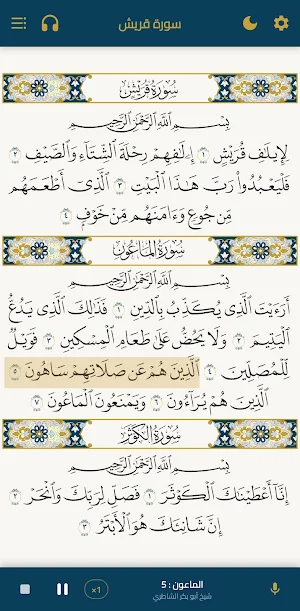 سورة قريش
سُورَةُ قُرَيْشٍ
بِسْمِ ٱللَّهِ ٱلرَّحْمَٰنِ ٱلرَّحِيمِ
لِإِيلَٰفِ قُرَيْشٍ ١ إِۦلَٰفِهِمْ رِحْلَةَ ٱلشِّتَآءِ وَٱلصَّيْفِ ٢
فَلْيَعْبُدُوا۟ رَبَّ هَٰذَا ٱلْبَيْتِ ٣ ٱلَّذِىٓ أَطْعَمَهُم
مِّن جُوعٍ وَءَامَنَهُم مِّنْ خَوْفٍۭ ٤
سُورَةُ المَاعُونِ
بِسْمِ ٱللَّهِ ٱلرَّحْمَٰنِ ٱلرَّحِيمِ
أَرَءَيْتَ ٱلَّذِى يُكَذِّبُ بِٱلدِّينِ ١ فَذَٰلِكَ ٱلَّذِى يَدُعُّ
ٱلْيَتِيمَ ٢ وَلَا يَحُضُّ عَلَىٰ طَعَامِ ٱلْمِسْكِينِ ٣ فَوَيْلٌ
لِّلْمُصَلِّينَ ٤ ٱلَّذِينَ هُمْ عَن صَلَاتِهِمْ سَاهُونَ ٥
ٱلَّذِينَ هُمْ يُرَآءُونَ ٦ وَيَمْنَعُونَ ٱلْمَاعُونَ ٧
سُورَةُ الكَوْثَرِ
بِسْمِ ٱللَّهِ ٱلرَّحْمَٰنِ ٱلرَّحِيمِ
إِنَّآ أَعْطَيْنَٰكَ ٱلْكَوْثَرَ ١ فَصَلِّ لِرَبِّكَ وَٱنْحَرْ ٢
إِنَّ شَانِئَكَ هُوَ ٱلْأَبْتَرُ ٣
الماعون : 5
شيخ أبو بكر الشاطري
×1